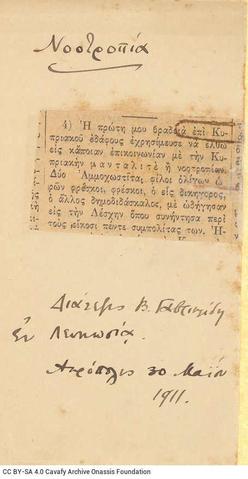 Νοοτροπία
4) Ἡ πρώτη μου βραδειὰ ἐπὶ Κυ-
πριακοῦ ἐδάφους ἐχρησίμευσε νὰ ἔλθω
εἰς κάποιαν ἐπικοινωνίαν μὲ τὴν Κυ-
πριακὴν μανταλιτὲ ἢ νοοτροπίαν.
Δύο Ἀμμοχωστῖται, φίλοι ὀλίγων ὡ-
ρῶν φρέσκοι, φρέσκοι, ὁ εἷς δικηγόρος,
ὁ ἄλλος δημοδιδάσκαλος, μὲ ὡδήγησαν
εἰς τὴν Λέσχην ὅπου συνήντησα περὶ
τοὺς εἴκοσι πέντε συμπολίτας των. Ἡ-
Διάλεξις Β. Γαβριηλίδη
ἐν Λευκωσίᾳ.
Ἀκρόπολις 30 Μαΐου
1911.
CC BY-SA 4.0 Cavafy Archive Onassis Foundation